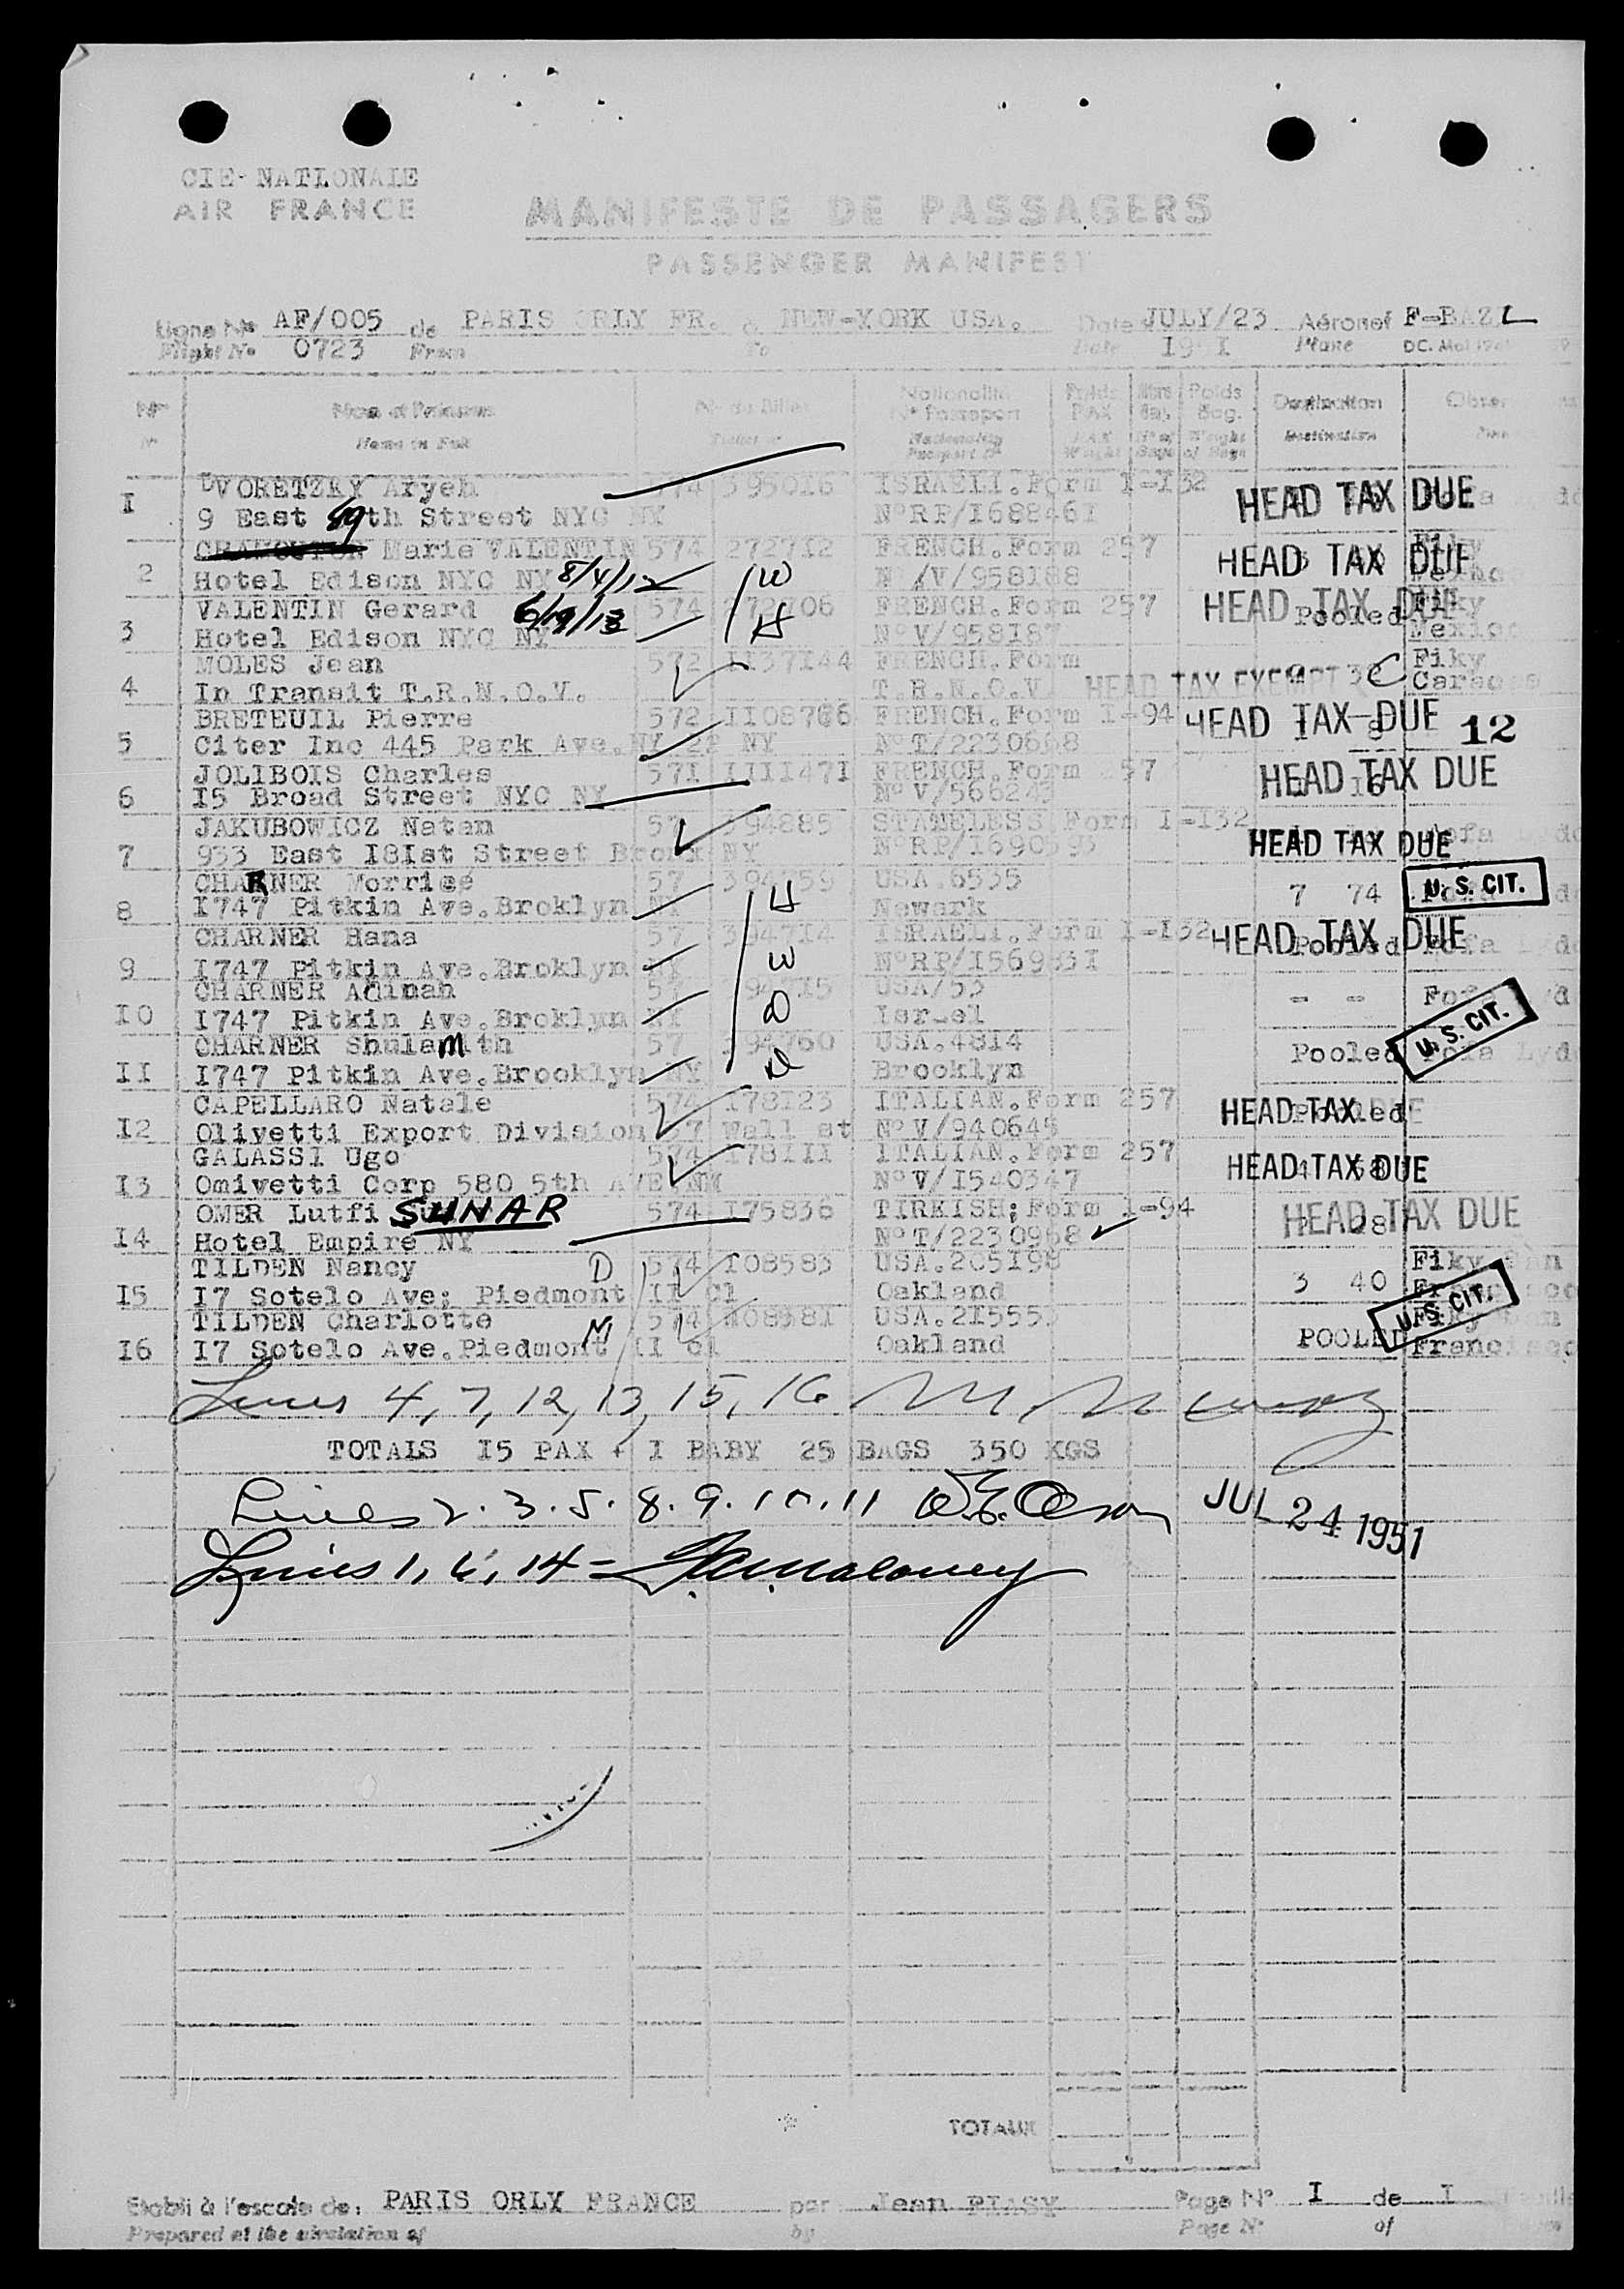 CIE NATIONALE
AIR FRANCE
MANIFESTE DE PASSAGERS
PASSENGER MANIFEST
Ligne No AF/005 de PARIS ORLY FR. a NEW-YORK USA. Date JULY/23 Aéronef F-BAZL
Flight No 0723 From To Date Plane
Nationalité Poids Poids
No du Billet No Passeport PAX Bag. Destination
Name in Full Nationality Weight Destination
DVORETZKY Aryeh 574 395016 ISRAELI.Form I-I32 HEAD TAX DUE
1 9 East 89th Street NYC NY N°RP/I688461
Marie VALENTIN 574 272712 FRENCH.Form 257 HEAD TAX DUE Fiky
2 Hotel Edison NYC NY 8/4/12 W N /V/958188
VALENTIN Gerard 6/19/13 574 272706 FRENCH.Form 257 HEAD TAX DUE Pooled Fiky
3 Hotel Edison NYC NY H N°V/958187 Mexico
MOLES Jean 572 1137144 FRENCH.Form Fiky
4 In Transit T.R.N.O.V. T.R.N.O.V. HEAD TAX EXEMPT C Caracas
BRETEUIL Pierre 572 FRENCH.Form I-94 HEAD TAX DUE 12
5 Citer Inc 445 Park Ave.NY 22 NY N°T/2230668
JOLIBOIS Charles 571 1111471 FRENCH.Form 257 HEAD TAX DUE 16
6 I5 Broad Street NYC NY N°V/566243
JAKUBOWICZ Natan 57 394885 STATELESS Form I-I32 HEAD TAX DUE
7 933 East I8Ist Street Bronx NY N°RP/I690593
CHARNER Morrice 57 394759 USA.6535 7 74 U.S. CIT.
8 I747 Pitkin Ave.Broklyn NY H Newark
CHARNER Hana 57 394714 ISRAELI.Form I-I32 HEAD TAX DUE Pooled Fofa Lydd
9 I747 Pitkin Ave.Broklyn NY W
CHARNER Adinah 57 394715 USA/53 - - Fofa
10 I747 Pitkin Ave.Broklyn NY D U.S. CIT.
CHARNER Shulamith 57 394760 USA.4814 Pooled Fofa Lydd
11 I747 Pitkin Ave.Brooklyn NY D Brooklyn
CAPELLARO Natale 574 178123 ITALIAN.Form 257 HEAD TAX DUE Pooled
12 Olivetti Export Division Wall st N°V/940645
GALASSI Ugo 574 178111 ITALIAN.Form 257 HEAD TAX DUE
13 Omivetti Corp 580 5th AVE N°V/I540347
OMER Lutfi SUNAR 574 175836 TIRKISH;Form I-94 HEAD TAX DUE
14 Hotel Empire NY N°T/2230968
TILDEN Nancy D 574 108583 USA.205198 3 40 Fiky San
15 I7 Sotelo Ave; Piedmont II Cl Oakland U.S. CIT.
TILDEN Charlotte M 574 USA.215555 POOLED
16 I7 Sotelo Ave.Piedmont II cl Oakland Francisco
Lines 4, 7, 12, 13, 15, 16
TOTALS I5 PAX + I BABY 25 BAGS 350 KGS
Lines 2. 3. 5. 8. 9. 10. 11 JUL 24 1951
Lines 1, 6, 14 =
TOTAUX
Etabli à l'escale de: PARIS ORLY FRANCE par Jean PIASY Page N° I de I
Prepared at the airstation of by Page N° of